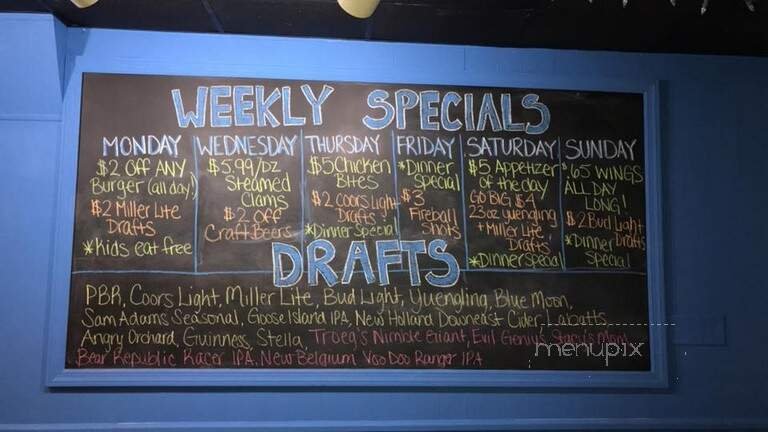 WEEKLY SPECIALS
MONDAY
$2 OFF ANY
Burger (all day!)
$2 Miller Lite
Drafts
*Kids eat free
WEDNESDAY
$5.99/DZ
Steamed
Clams
$2 OFF
Craft Beers
THURSDAY
$5 Chicken
Bites
$2 COORS Light
Drafts
*Dinner Special
FRIDAY
*Dinner
Special
$3
Fireball
Shots
SATURDAY
$5 Appetizer
of the day
GO BIG $4
23oz yuengling
+ Miller Lite
Drafts
*Dinner Special
SUNDAY
$.65 WINGS
ALL DAY
LONG!
$2 Bud Light
Drafts
*Dinner
Special
DRAFTS
PBR, Coors Light, Miller Lite, Bud Light, Yuengling, Blue Moon,
Sam Adams Seasonal, Goose Island IPA, New Holland Downeast Cider, Labatts
Angry Orchard, Guinness, Stella, Troeg's Nimble Giant, Evil Genius Stacy's Mom,
Bear Republic Racer IPA, New Belgium VooDoo Ranger IPA
menupix